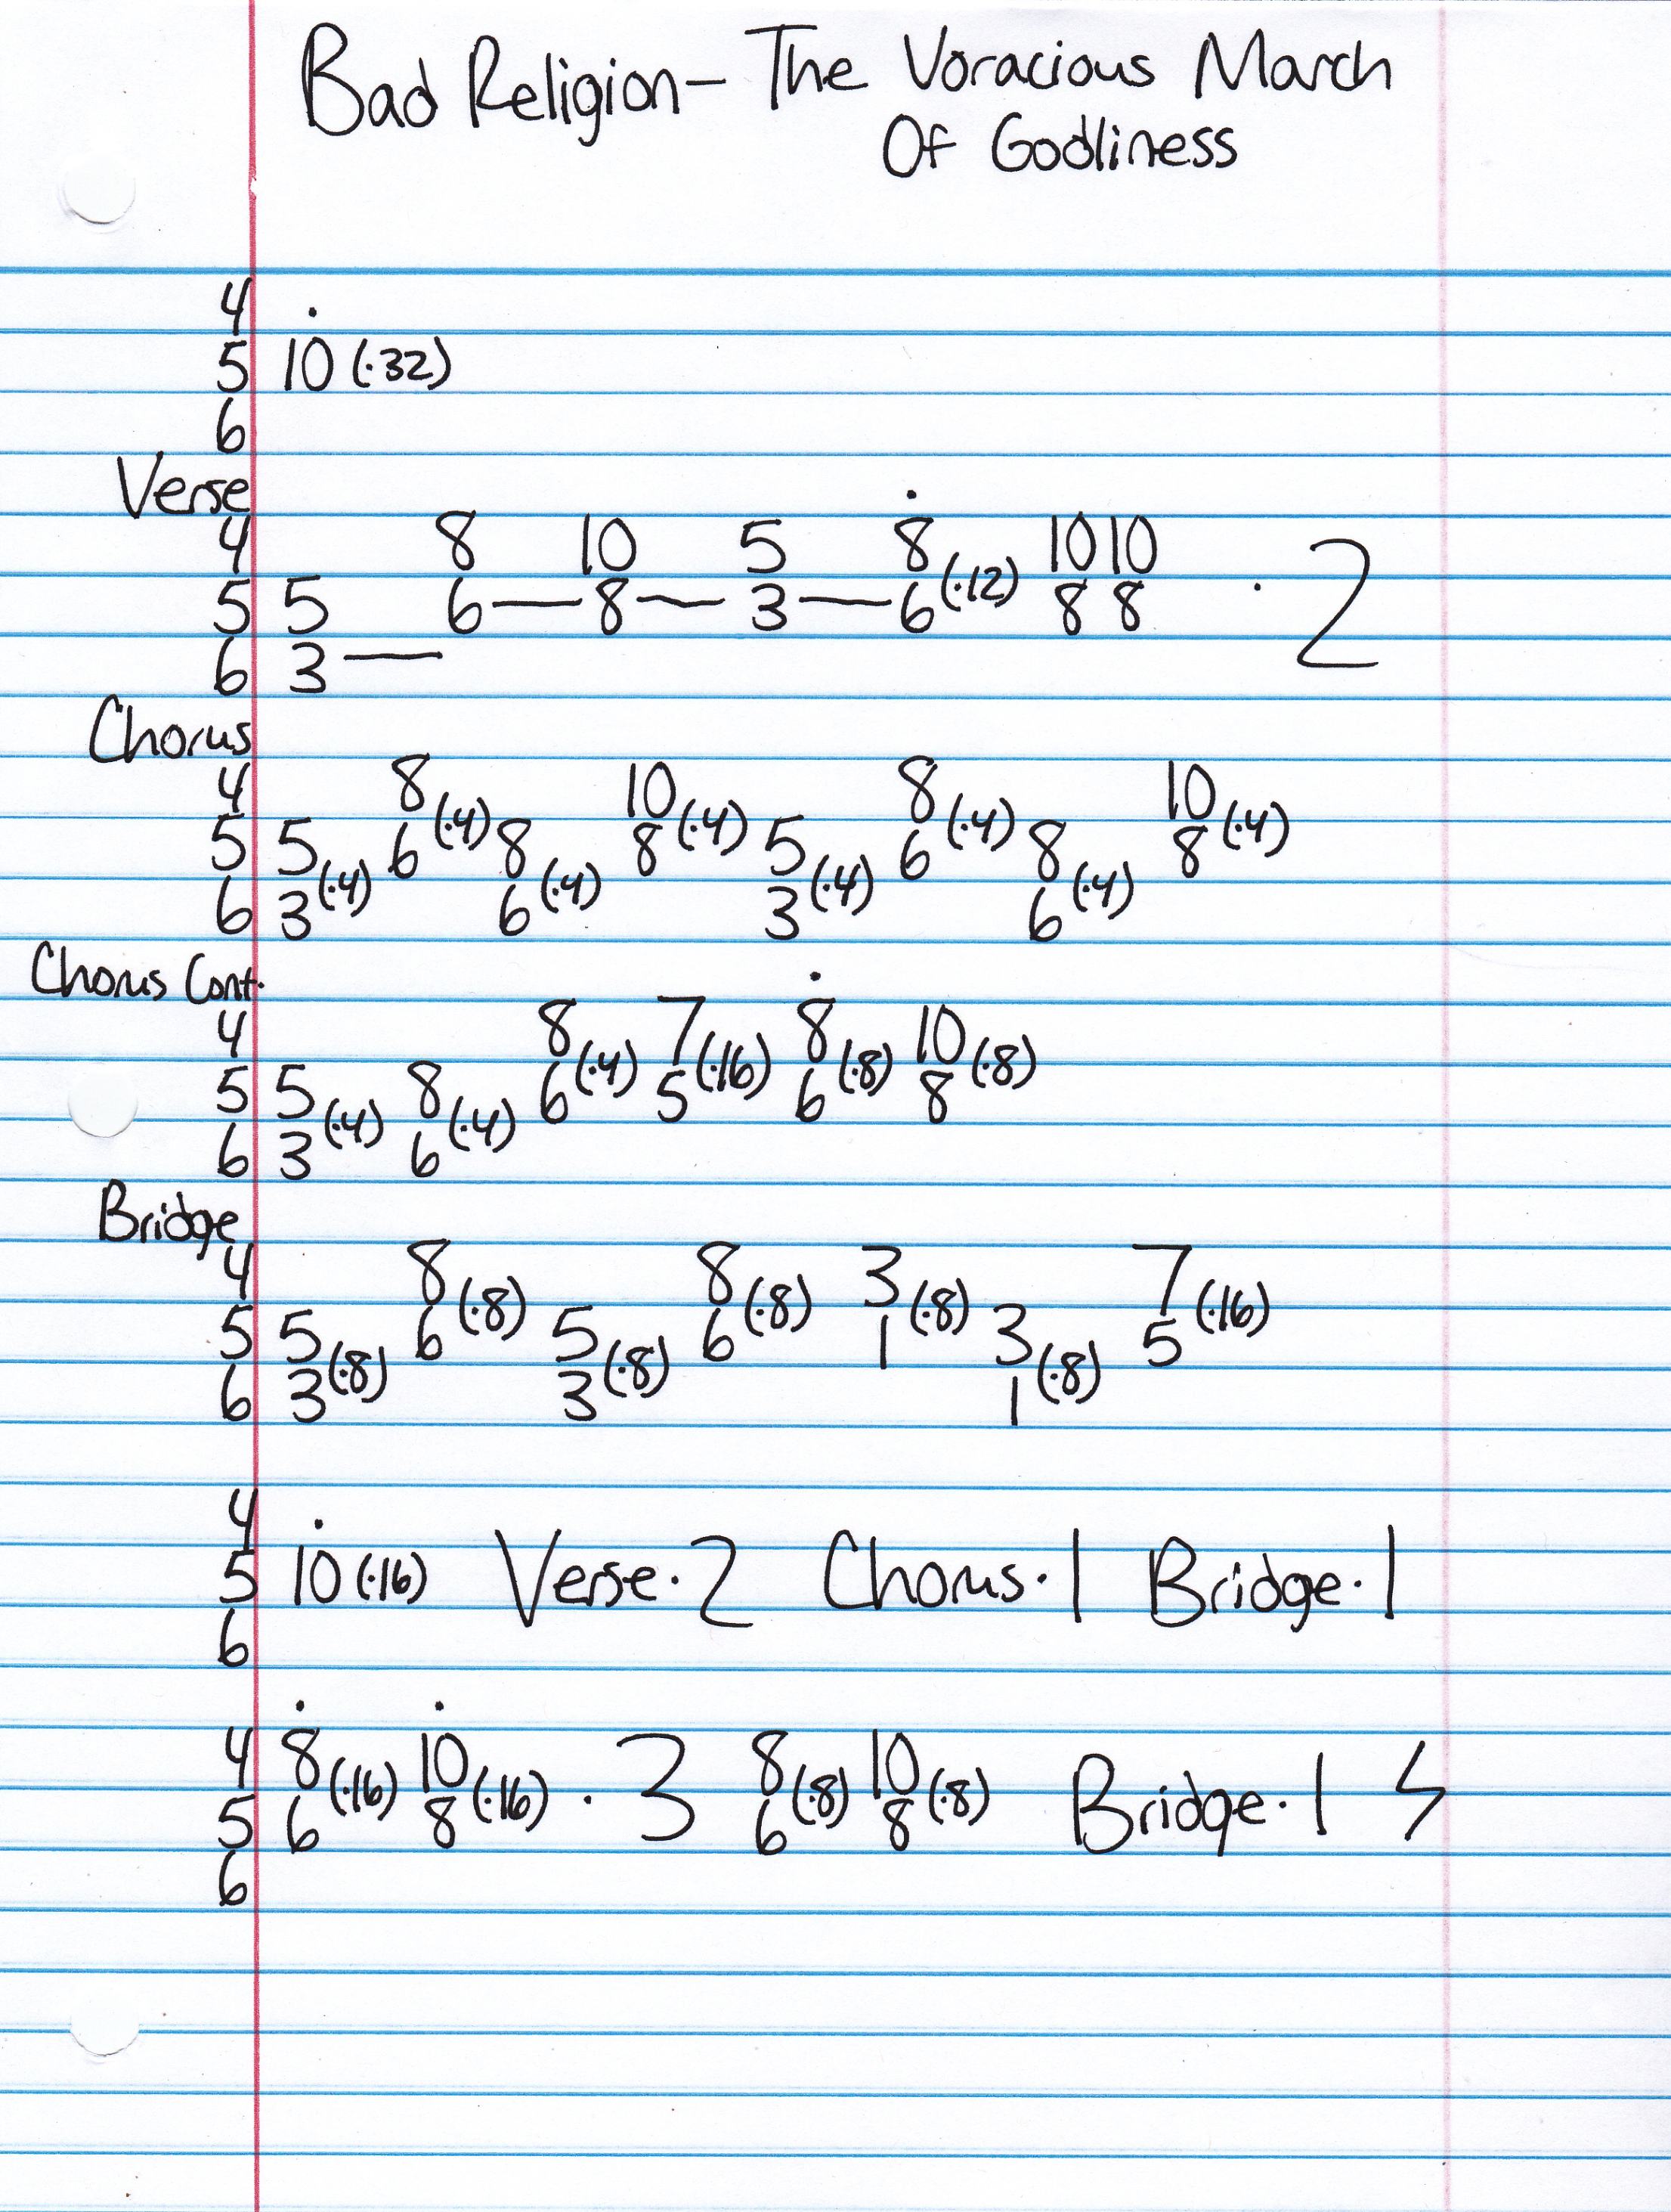 Bad Religion – The Voracious March
Of Godliness
4 .
5 10 (·32)
6
Verse
4 8 10 5 8̇ (·12) 10 10
5 5 6 — 8 — 3 — 6 8 8 · 2
6 3 —
Chorus
4 8 (·4) 10 (·4) 8 (·4) 10 (·4)
5 5 (·4) 6 8 (·4) 8 5 (·4) 6 8 (·4) 8
6 3 6 3 6
Chorus Cont.
4 8 (·4) 7 (·16) 8̇ (·8) 10 (·8)
5 5 (·4) 8 (·4) 6 5 6 8
6 3 6
Bridge
4 8 (·8) 8 (·8) 3 (·8) 7 (·16)
5 5 (·8) 6 5 (·8) 6 1 3 (·8) 5
6 3 3 1
4 .
5 10 (·16) Verse · 2 Chorus · 1 Bridge · 1
6
4 8̇ (·16) 10̇ (·16) · 3 8 (·8) 10 (·8) Bridge · 1
5 6 8 6 8
6